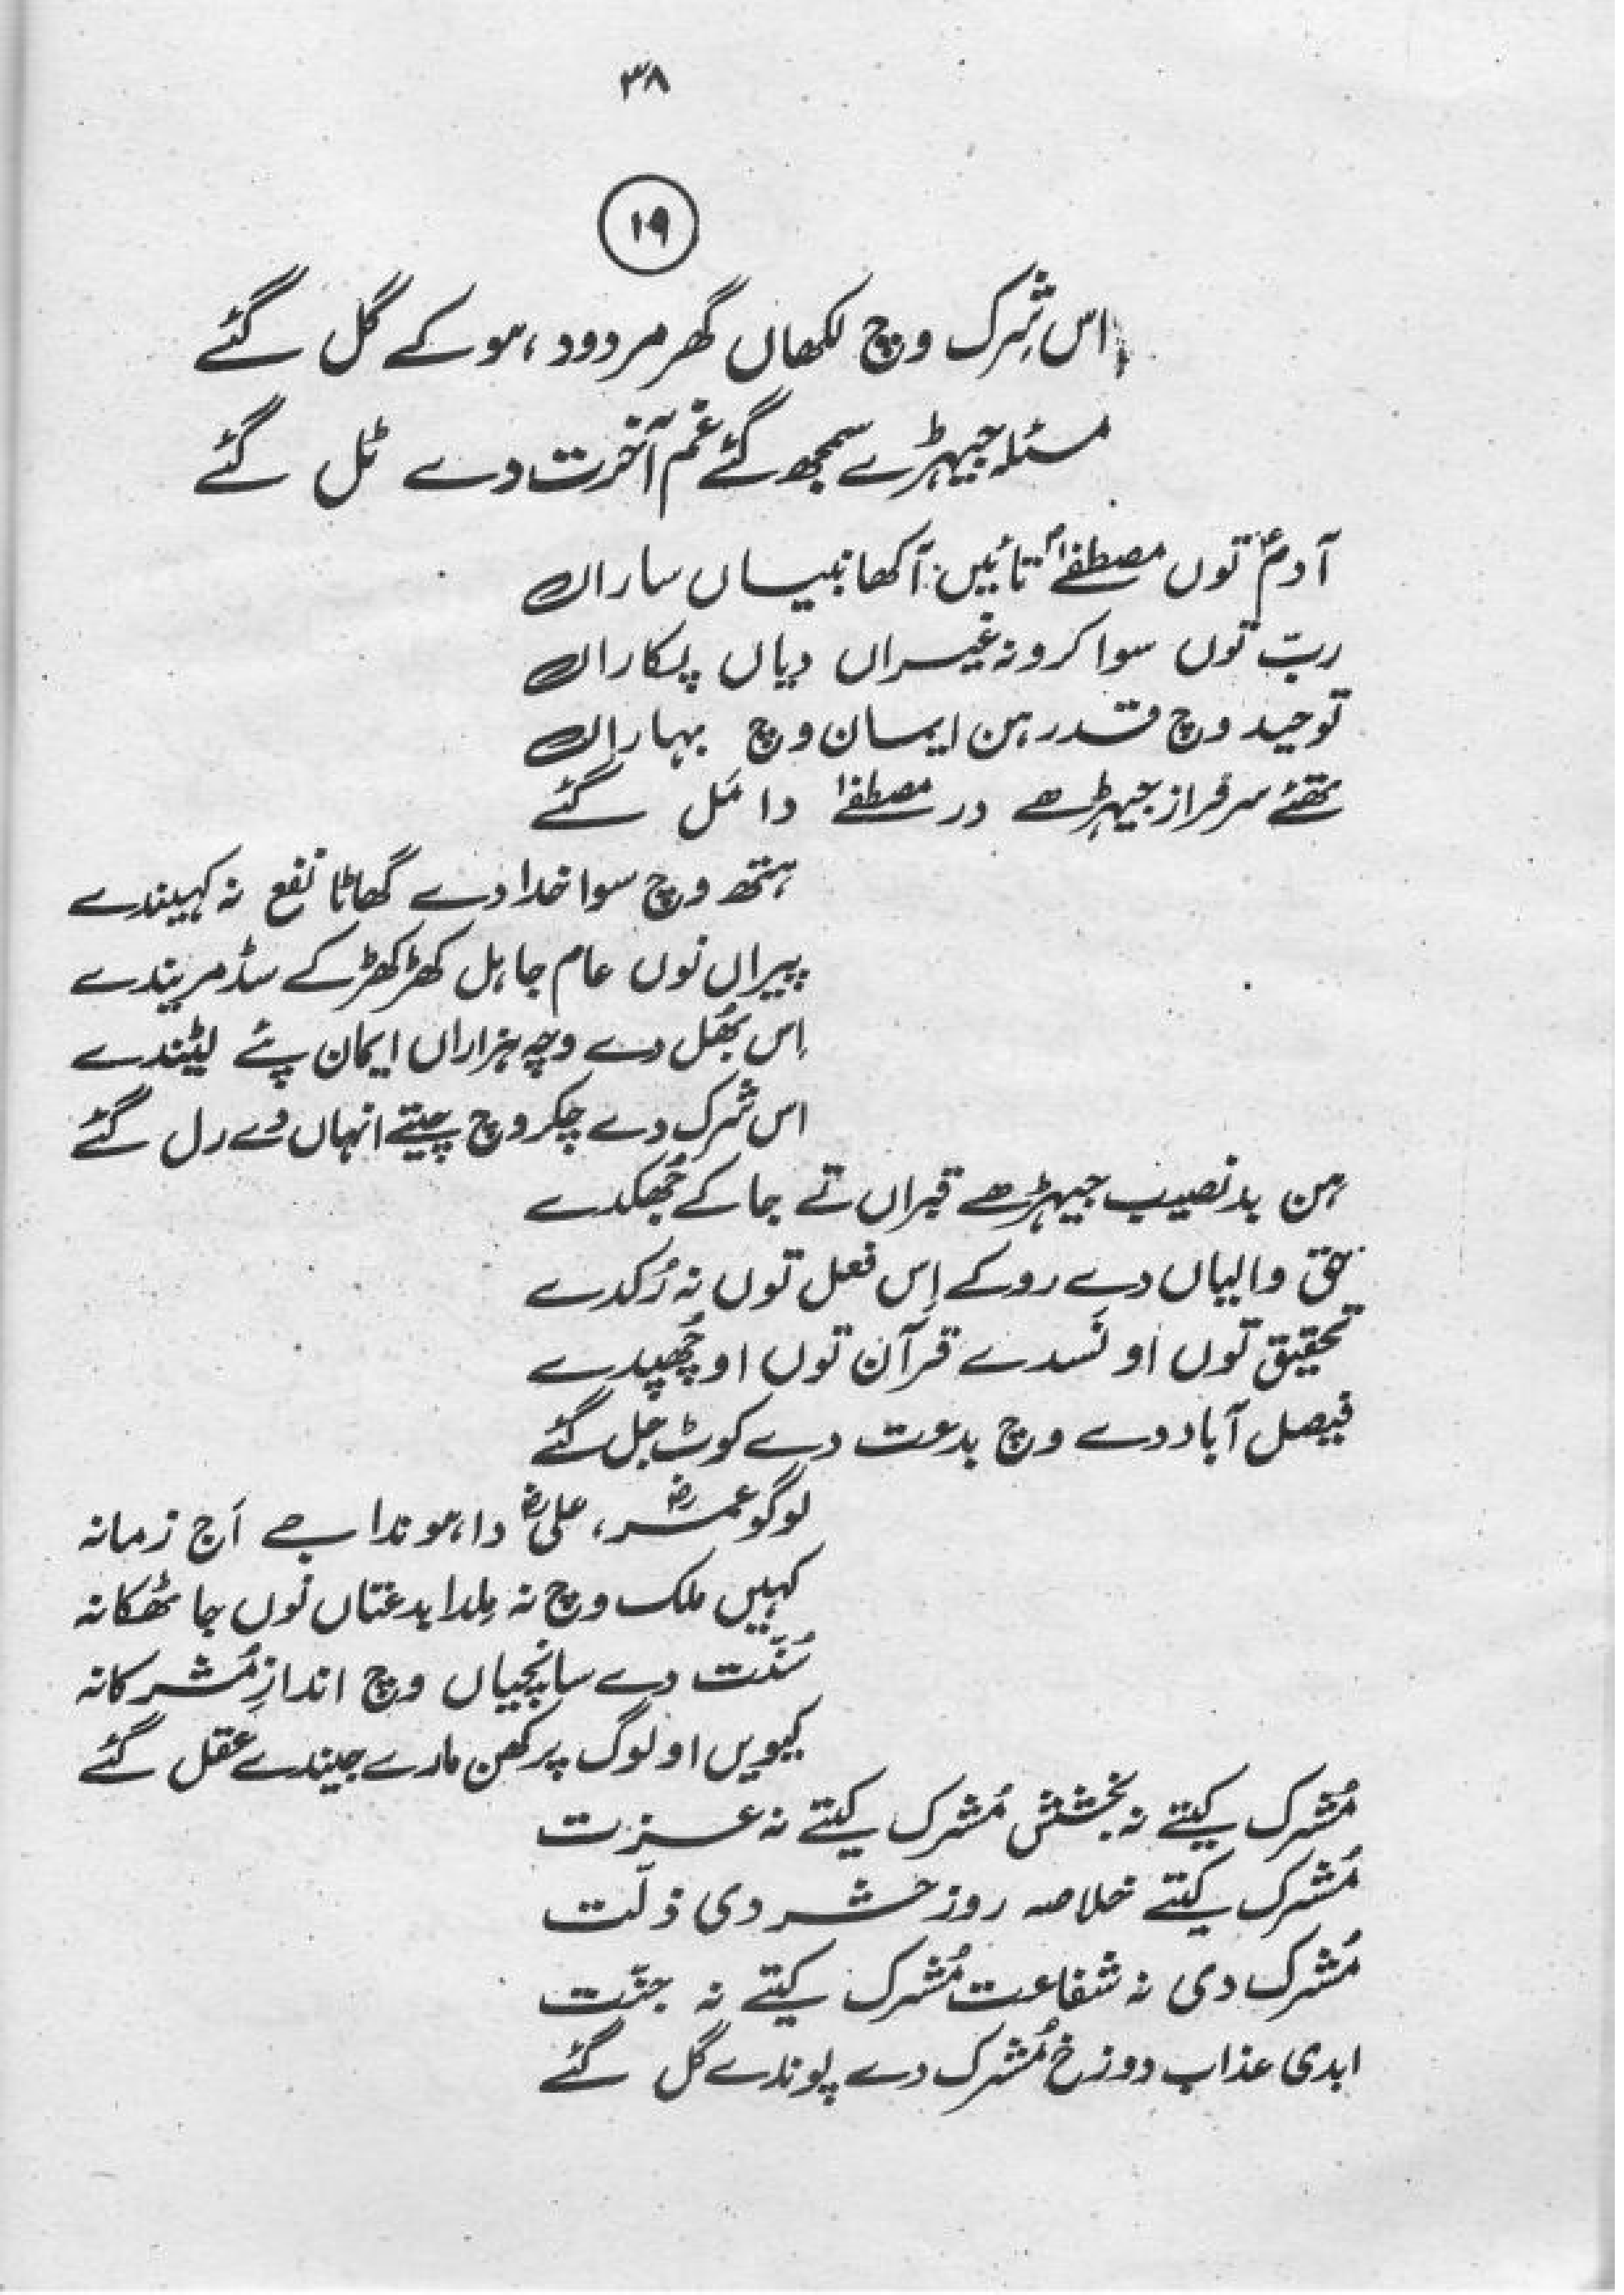 ۳۸
۱۹
اس شِرک وچ لکھاں گھر مردود، ہو کے گل گئے
مسئلہ جیہڑے سمجھ گئے غم آخرت دے ٹل گئے
آدمؑ توں مصطفےٰؐ تائیں آکھا نبیاں ساراں
ربّ توں سوا کرو نہ غیراں دیاں پکاراں
توحید وچ قدر ہن ایمان وچ بہاراں
تھئے سرفراز جیہڑھے در مصطفےٰ دا مَل گئے
ہتھ وچ سوا خدا دے گھاٹا نفع نہ کہیندے
پیراں نوں عام جاہل کھڑ کھڑ کے سڈ مریندے
اِس بھُل دے وچہ ہزاراں ایمان پئے لیٹندے
اس شرک دے چکر وچ چیتے انہاں دے رل گئے
ہن بدنصیب جیہڑھے قبراں تے جا کے جُھکدے
حق والیاں دے روکے اِس فعل توں نہ رُکدے
تحقیق توں او نَسدے قرآن توں او چُھپدے
فیصل آباد دے وچ بدعت دے کوٹ جل گئے
لوگو عمرؓ، علیؓ دا، ہوندا جے اَج زمانہ
کہیں ملک وچ نہ مِلدا بدعتاں نوں جا ٹھکانہ
سُنّت دے سانچیاں وچ اندازِ مُشرکانہ
کیویں او لوگ پرکھن مارے جیندے عقل گئے
مُشرک کیتے نہ بخشش مُشرک کیتے نہ عزت
مُشرک کیتے خلاصہ روز حشر دی ذلّت
مُشرک دی نہ شفاعت مُشرک کیتے نہ جنّت
ابدی عذاب دوزخ مُشرک دے پوندے گل گئے